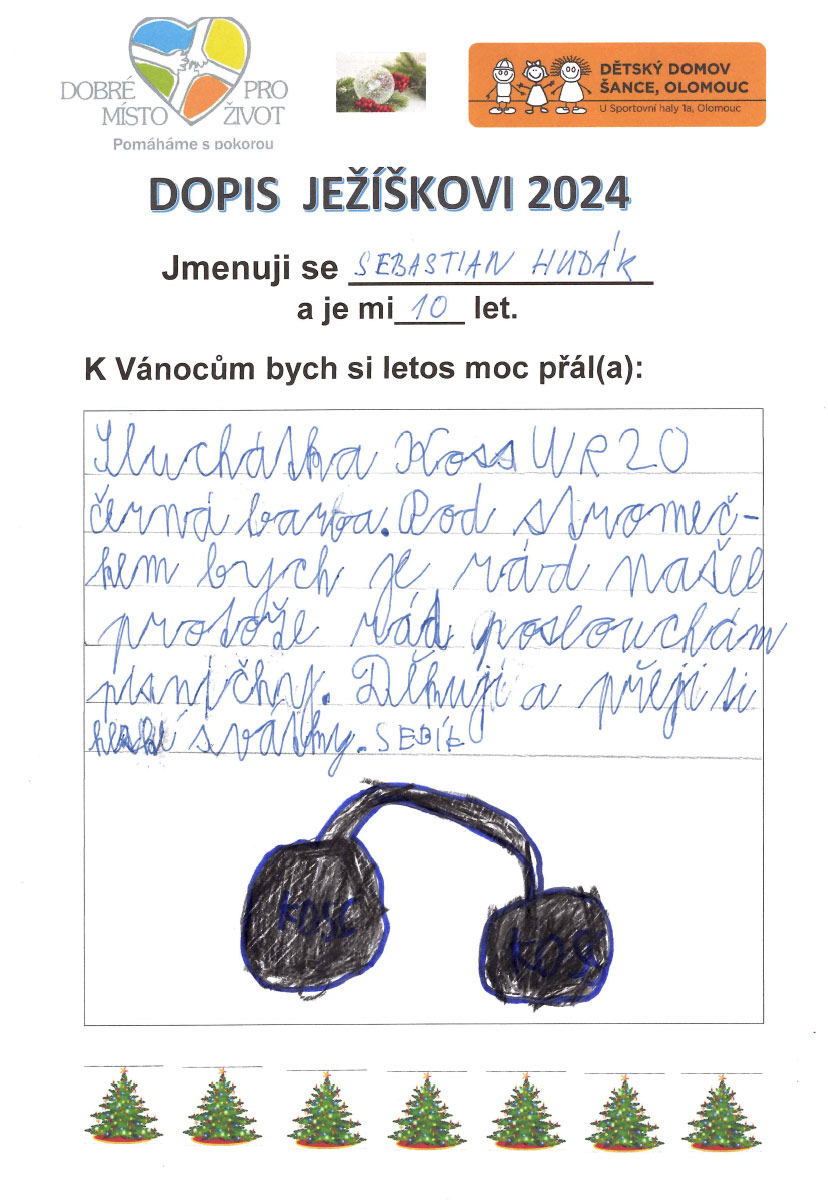 DOBRÉ PRO
MÍSTO ŽIVOT
Pomáháme s pokorou
DĚTSKÝ DOMOV
ŠANCE, OLOMOUC
U Sportovní haly 1a, Olomouc
DOPIS JEŽÍŠKOVI 2024
Jmenuji se SEBASTIAN HUDÁK
a je mi 10 let.
K Vánocům bych si letos moc přál(a):
Sluchátka Koss WR 20
černá barva. Pod stromeč-
kem bych je rád našel
protože rád poslouchám
písničky. Děkuji a přeji si
hezké svátky. SEBÍK
KOSS
KOSS